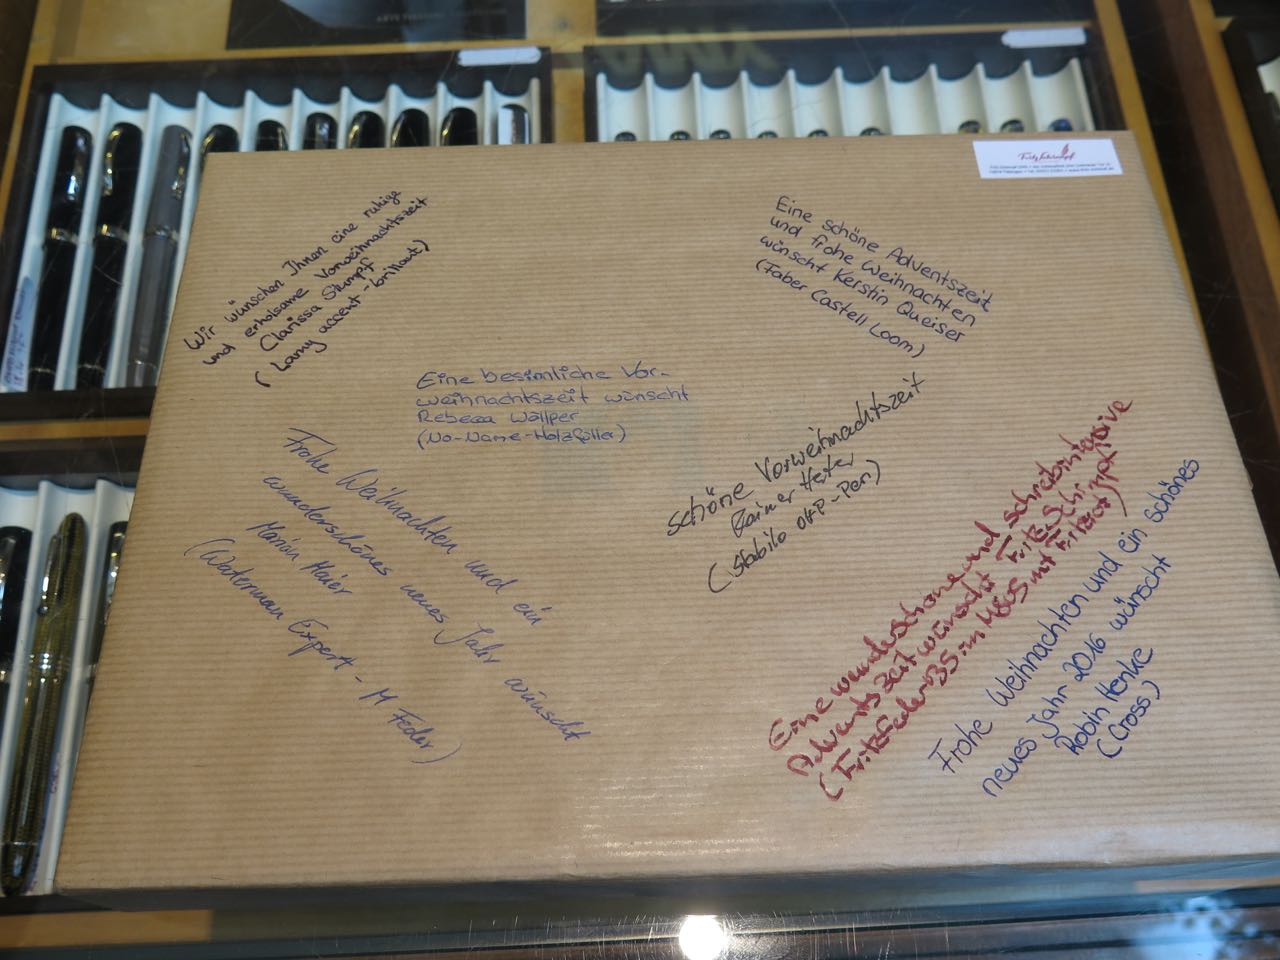 Fritz Schimpf
Wir wünschen Ihnen eine ruhige
und erholsame Vorweihnachtszeit
Clarissa Stumpf
(Lamy accent-brillant)
Eine schöne Adventszeit
und frohe Weihnachten
wünscht Kerstin Queiser
(Faber Castell Loom)
Eine besinnliche Vor-
weihnachtszeit wünscht
Rebecca Wällper
(No-Name-Holzfüller)
schöne Vorweihnachtszeit
Rainer
(Stabilo OH-P-Pen)
Frohe Weihnachten und ein
wunderschönes neues Jahr wünscht
Marion Maier
(Waterman Expert - M Feder)
Eine wunderschöne und schreibintensive
Adventszeit wünscht Fritz Schimpf
in M805 mit
Frohe Weihnachten und ein schönes
neues Jahr 2016 wünscht
Robin Henke
(Cross)